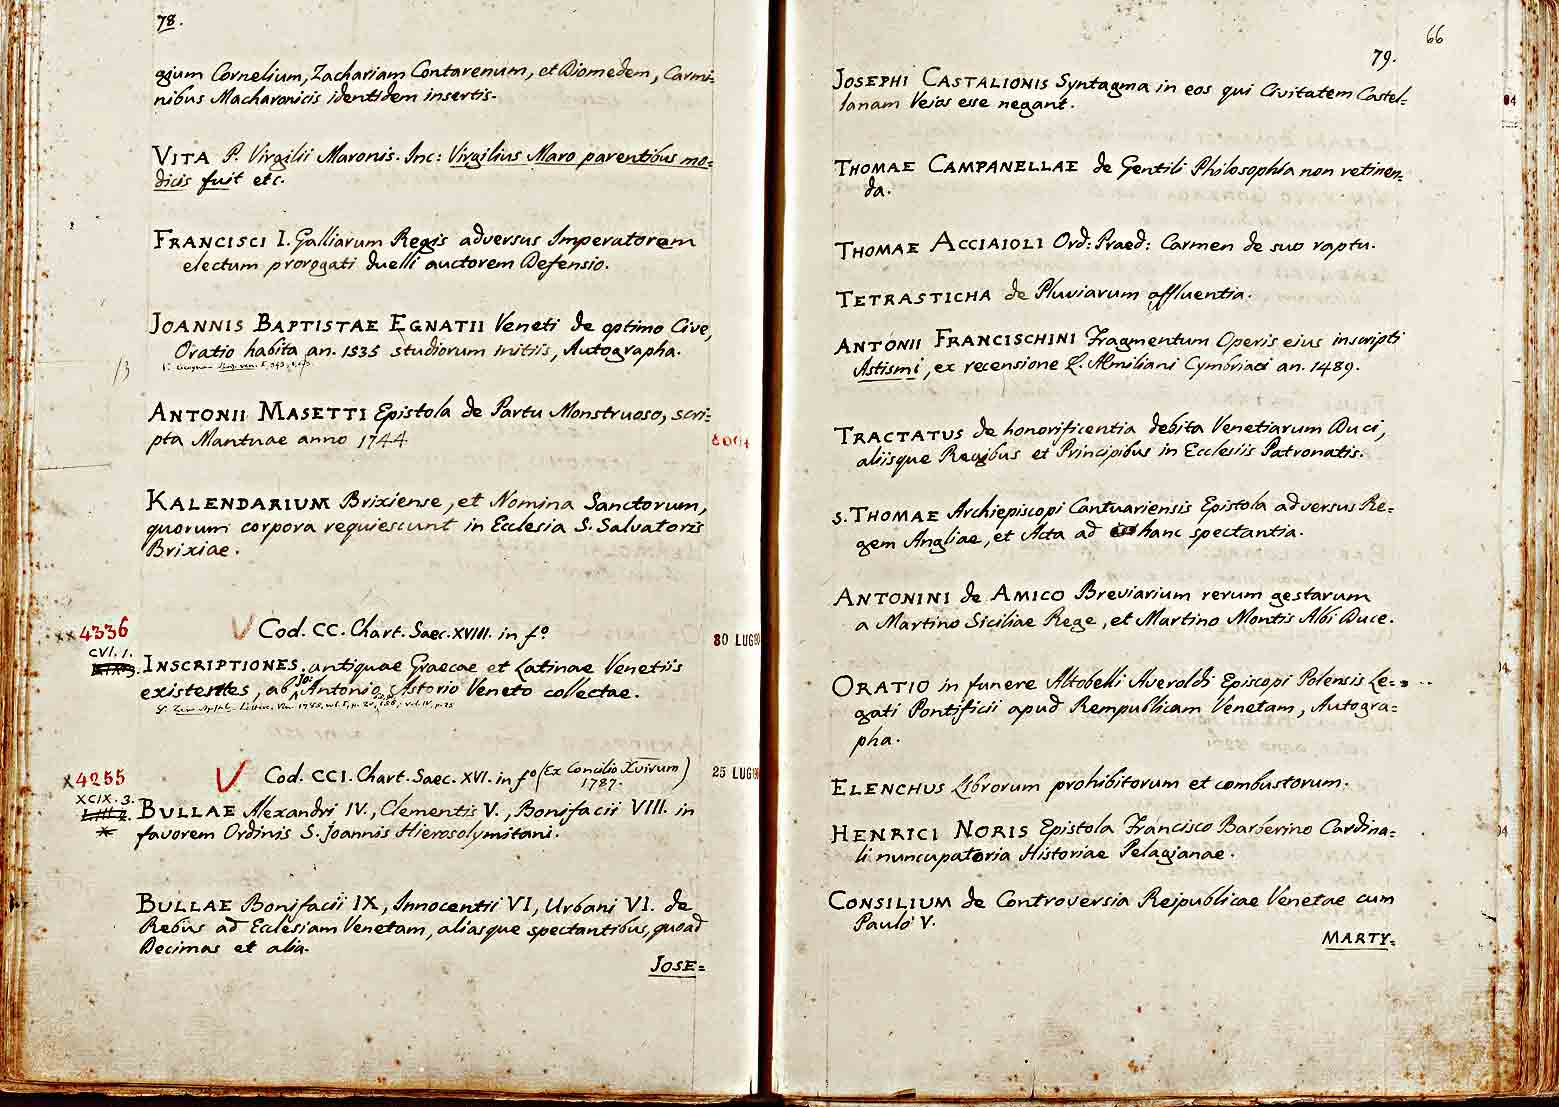 78.
ggium Cornelium, Zachariam Contarenum, et Diomedem, Carmi=
nibus Macharonicis identidem insertis.
VITA P. Virgilii Maronis. Inc: Virgilius Maro parentibus mo=
dicis fuit etc.
FRANCISCI I. Galliarum Regis adversus Imperatorem
electum prorogati duelli auctorem Defensio.
JOANNIS BAPTISTAE EGNATII Veneti de optimo Cive,
Oratio habita an. 1535 studiorum initiis, Autographa.
13
ANTONII MASETTI Epistola de Partu Monstruoso, scri=
pta Mantuae anno 1744
KALENDARIUM Brixiense, et Nomina Sanctorum,
quorum corpora requiescunt in Ecclesia S. Salvatoris
Brixiae.
xx4336
V Cod. CC. Chart. Saec. XVIII. in fo
80 LUG
CVI. 1.
INSCRIPTIONES antiquae Graecae et Latinae Venetiis
existentes, ab Jo: Antonio Astorio Veneto collectae.
x4255
V Cod. CCI. Chart. Saec. XVI. in fo (Ex Concilio Xvirum)
1787.
25 LUG
XCIX. 3.
BULLAE Alexandri IV., Clementis V., Bonifacii VIII. in
favorem Ordinis S. Joannis Hierosolymitani.
BULLAE Bonifacii IX, Innocentii VI, Urbani VI. de
Rebus ad Ecclesiam Venetam, aliasque spectantibus, quoad
Decimas et alia.
JOSE=
66
79.
JOSEPHI CASTALIONIS Syntagma in eos qui Civitatem Castel=
lanam Veios esse negant.
THOMAE CAMPANELLAE de Gentili Philosophia non retinen=
da.
THOMAE ACCIAIOLI Ord: Praed: Carmen de suo raptu.
TETRASTICHA de Pluviarum affluentia.
ANTONII FRANCISCHINI Fragmentum Operis eius inscripti
Astismi, ex recensione Q. Aemiliani Cymbriaci an. 1489.
TRACTATUS de honorificentia debita Venetiarum Duci,
aliisque Regibus et Principibus in Ecclesiis Patronatis.
S. THOMAE Archiepiscopi Cantuariensis Epistola adversus Re=
gem Angliae, et Acta ad hanc spectantia.
ANTONINI de AMICO Breviarium rerum gestarum
a Martino Siciliae Rege, et Martino Montis Albi Duce.
ORATIO in funere Altobelli Averoldi Episcopi Polensis Le=
gati Pontificii apud Rempublicam Venetam, Autogra=
pha.
ELENCHUS Librorum prohibitorum et combustorum.
HENRICI NORIS Epistola Francisco Barberino Cardina=
li nuncupatoria Historiae Pelagianae.
CONSILIUM de Controversia Reipublicae Venetae cum
Paulo V.
MARTY=